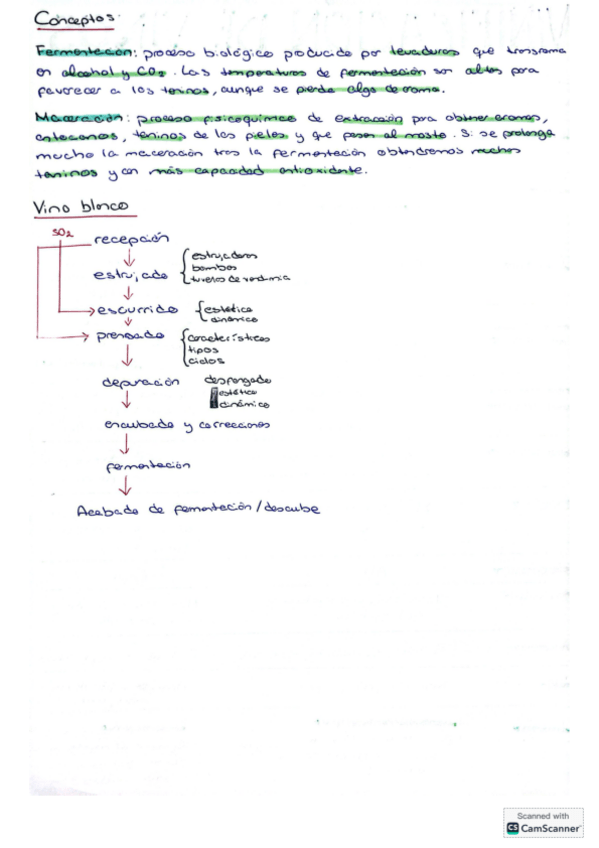 Conceptos:
Fermentación: proceso biológico producido por levaduras que transforma
en alcohol y CO2. Las temperaturas de fermentación son altas para
favorecer a los taninos, aunque se pierda algo de aroma.
Maceración: proceso fisicoquímico de extracción para obtener aromas,
antocianos, taninos de las pieles y que pasan al mosto. Si se prolonga
mucho la maceración tras la fermentación obtendremos muchos
taninos y con más capacidad antioxidante.
Vino blanco
SO2
recepción
estrujado { estrujadoras
bombas
tuberías de vendimia
escurrido { estático
dinámico
prensado { características
tipos
ciclos
depuración desfangado
estático
dinámico
encubado y correcciones
fermentación
Acabado de fermentación/descube
Scanned with
CS CamScanner